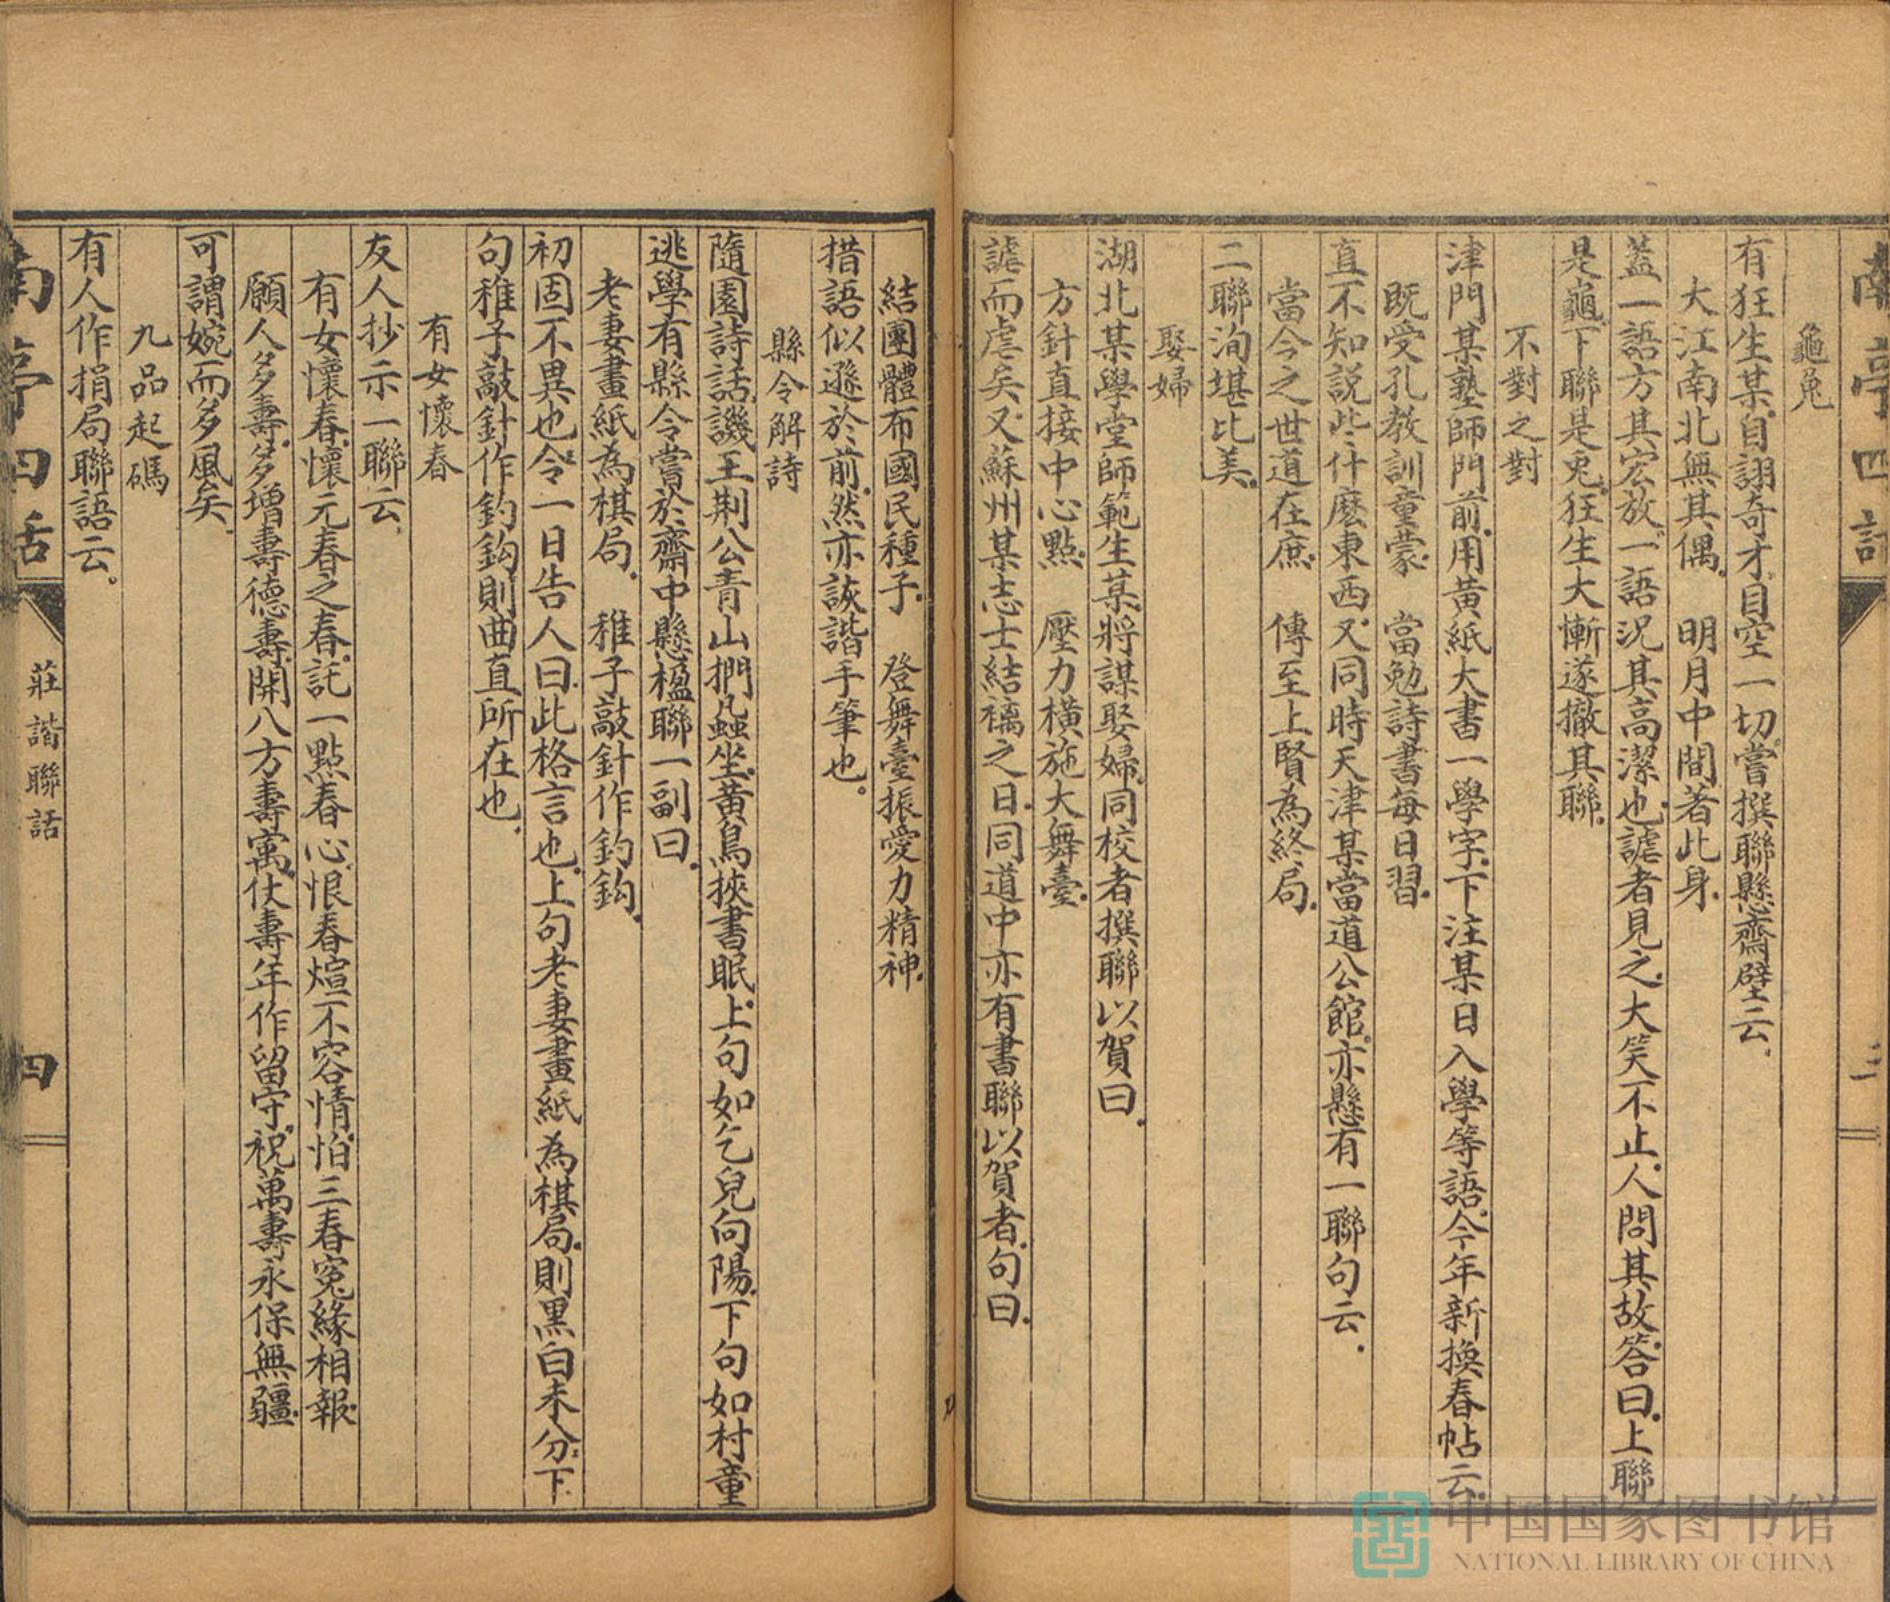 南亭四話
三
龜兔
有狂生某.自詡奇才.目空一切.嘗撰聯懸齋壁云.
大江南北無其偶.　明月中間著此身.
蓋一語方其宏放.一語況其高潔也.謔者見之.大笑不止.人問其故.答曰.上聯
是龜.下聯是兎.狂生大慚.遂撤其聯.
不對之對
津門某塾師門前.用黃紙大書一學字.下注某日入學等語.今年新換春帖云.
既受孔教訓童蒙.　當勉詩書每日習.
直不知説些什麽東西.又同時天津某當道公館.亦懸有一聯句云.
當今之世道在庶.　傳至上賢為終局.
二聯洵堪比美.
娶婦
湖北某學堂師範生某.將謀娶婦.同校者撰聯以賀曰.
方針直接中心點.　壓力橫施大舞臺.
謔而虐矣.又蘇州某志士結褵之日.同道中亦有書聯以賀者.句曰.
結團體布國民種子.　登舞臺振愛力精神.
措語似遜於前.然亦詼諧手筆也。
縣令解詩
隨園詩話.譏王荆公青山捫虱坐.黃鳥挾書眠.上句如乞兒向陽.下句如村童
逃學.有縣令嘗於齋中懸楹聯一副曰.
老妻畫紙為棋局.　稚子敲針作釣鈎.
初固不異也.令一日告人曰.此格言也.上句老妻畫紙為棋局.則黑白未分.下
句稚子敲針作釣鈎.則曲直所在也.
有女懷春
友人抄示一聯云.
有女懷春.懷元春之春.託一點春心.恨春煊不容情.怕三春寃緣相報.
願人多壽.多增壽德壽.開八方壽寓.仗壽年作留守.祝萬壽永保無疆.
可謂婉而多風矣.
九品起碼
有人作捐局聯語云。
南亭四話
莊諧聯話
四
中国国家图书馆
NATIONAL LIBRARY OF CHINA